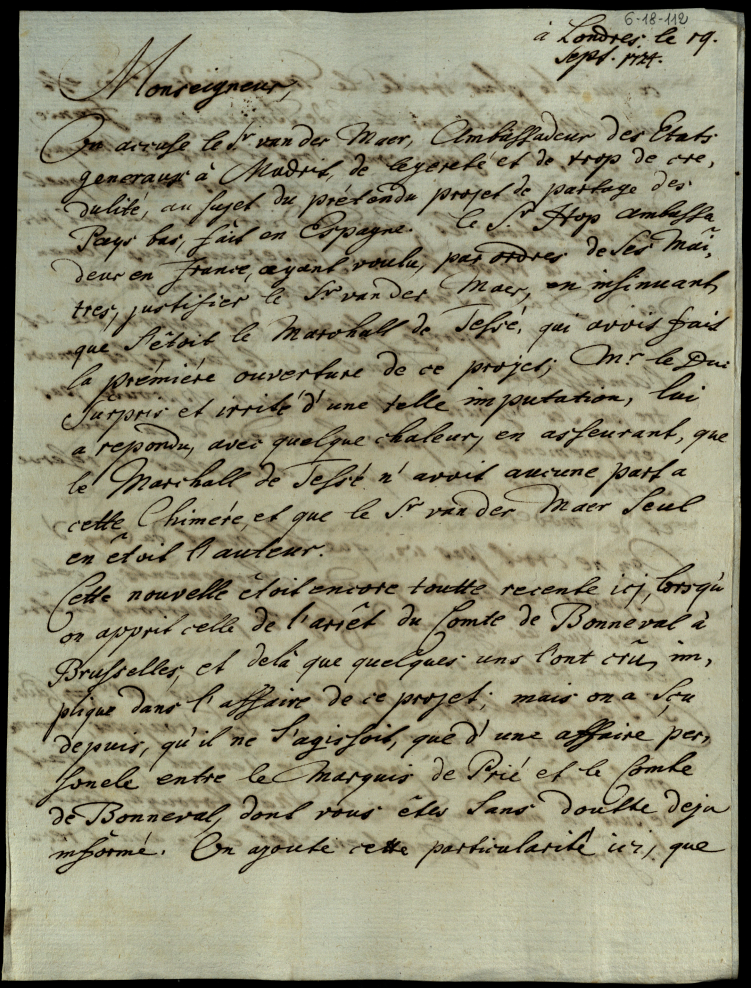 6-18-112
à Londres, le 19.
Sept. 1724.
Monseigneur,
On accuse le Sr. van der Maer, Ambassadeur des Etats
generaux à Madrit, de legereté et de trop de cre,
dulité, au sujet du prétendu projet de partage des
Pays bas, fait en Espagne. le Sr. Hop ambassa
deur en france, ayant voulu, par ordres de Ses Maî,
tres, justifier le Sr van der Maer, en insinuant,
que S'étoit le Marchall de Tessé, qui avoit frait
la prémiére ouverture de ce projet; Mr. le Duc
Surpris et irrité d'une telle imputation, lui
a repondu, avec quelque chaleur, en asseurant, que
le Marchall de Tessé n'avoit aucune part a
cette Chimére, et que le Sr. van der Maer Seul
en étoit l'auteur.
Cette nouvelle étoit encore toutte recente ici, lorsqu'
on apprit celle de l'arrêt du Comte de Bonneval à
Brusselles, et delà que quelques uns l'ont crû im,
pliqué dans l'affaire de ce projet; mais on a Sçu
depuis, qu'il ne S'agissoit, que d'une affaire per,
sonele entre le Marquis de Prié et le Comte
de Bonneval, dont vous êtes Sans doutte deja
informé. On ajoute cette particularité ici, que